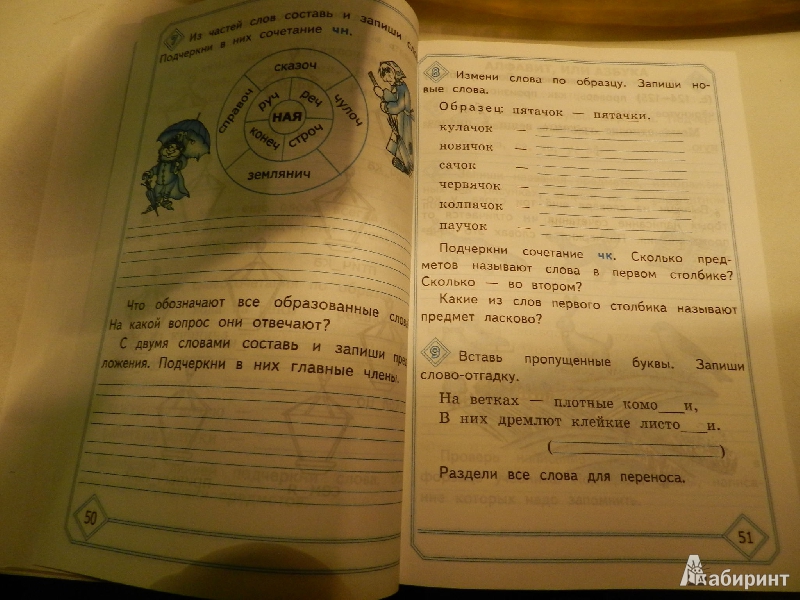 7 Из частей слов составь и запиши сло
Подчеркни в них сочетание чн.
сказоч
справоч
чулоч
руч
реч
НАЯ
конеч
строч
землянич
Что обозначают все образованные слов
На какой вопрос они отвечают?
С двумя словами составь и запиши пред
ложения. Подчеркни в них главные члены.
50
8 Измени слова по образцу. Запиши но-
вые слова.
Образец: пятачок — пятачки.
кулачок –
новичок –
сачок –
червячок –
колпячок –
паучок –
Подчеркни сочетание чк. Сколько пред-
метов называют слова в первом столбике?
Сколько — во втором?
Какие из слов первого столбика называют
предмет ласково?
9 Вставь пропущенные буквы. Запиши
слово-отгадку.
На ветках — плотные комо___и,
В них дремлют клейкие листо___и.
(____________________)
Раздели все слова для переноса.
51
Лабиринт